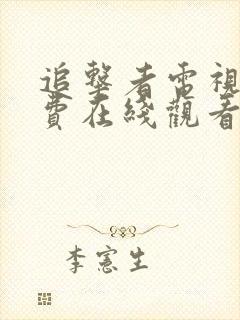 追擊者電視
費在綫觀看
李憲生